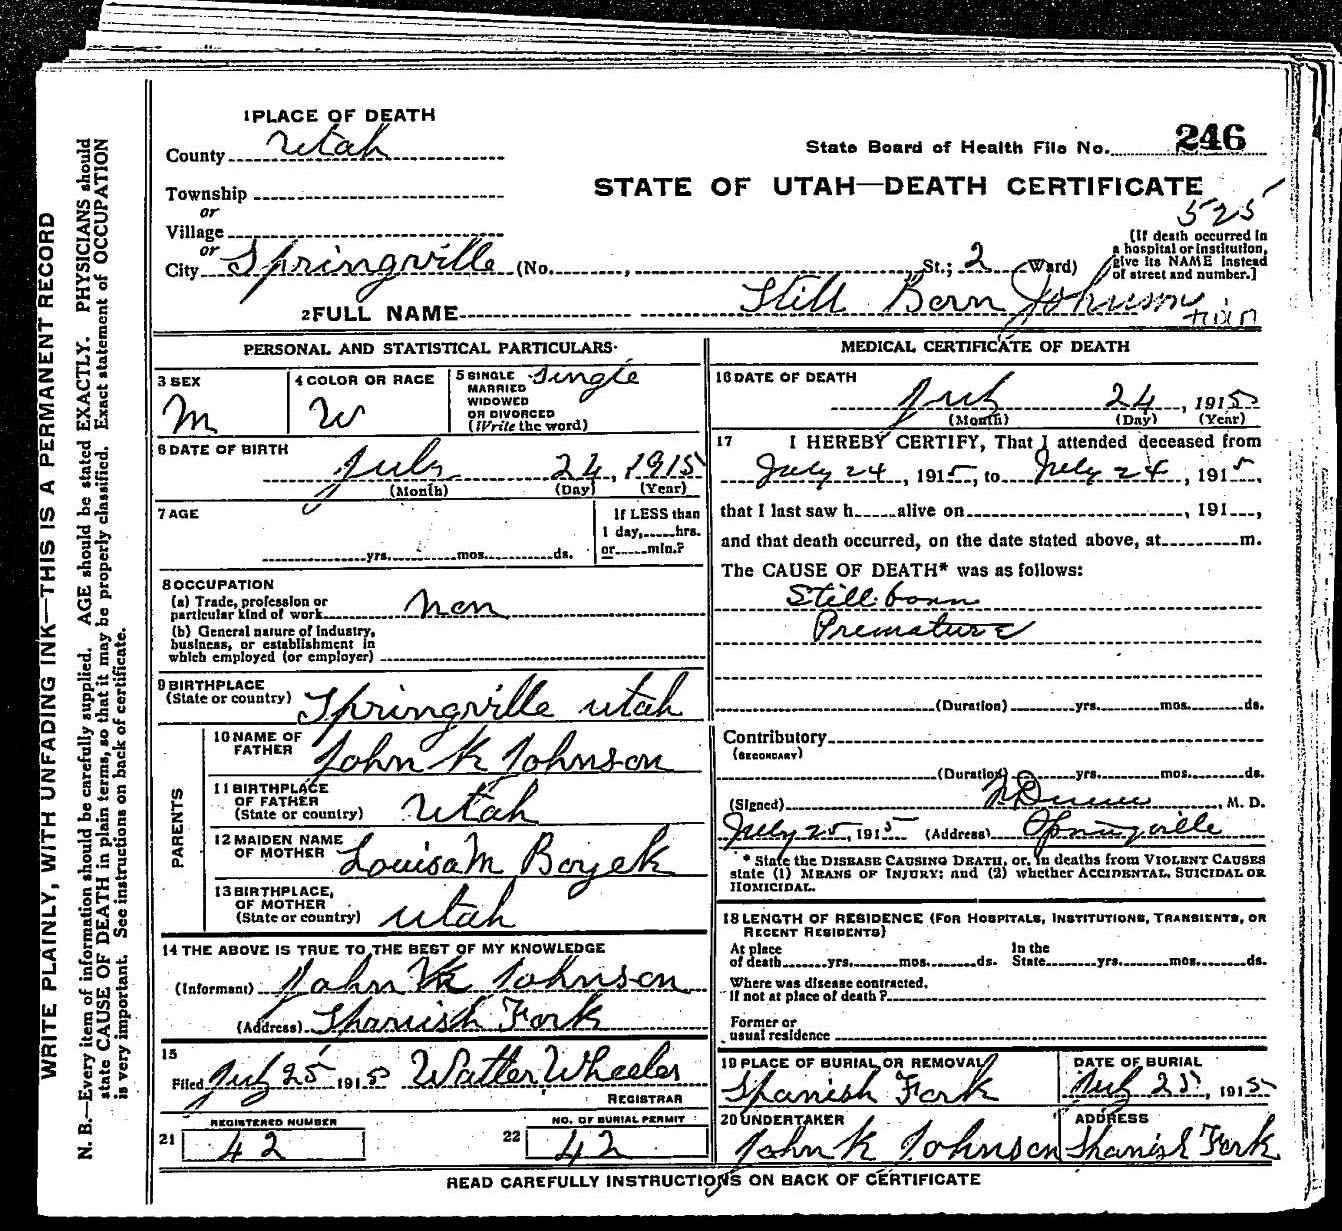 WRITE PLAINLY, WITH UNFADING INK—THIS IS A PERMANENT RECORD
N. B.—Every item of information should be carefully supplied. AGE should be stated EXACTLY. PHYSICIANS should
state CAUSE OF DEATH in plain terms, so that it may be properly classified. Exact statement of OCCUPATION
is very important. See instructions on back of certificate.
1 PLACE OF DEATH
County Utah
Township
or
Village
or
City Springville (No. , St.; 2 Ward)
State Board of Health File No. 246
STATE OF UTAH—DEATH CERTIFICATE
525
[If death occurred in
a hospital or institution,
give its NAME instead
of street and number.]
2 FULL NAME Still Born Johnson
twin
PERSONAL AND STATISTICAL PARTICULARS
3 SEX
M
4 COLOR OR RACE
W
5 SINGLE
MARRIED
WIDOWED
OR DIVORCED
(Write the word)
Single
6 DATE OF BIRTH
July 24, 1915
(Month) (Day) (Year)
7 AGE
yrs. mos. ds.
If LESS than
1 day, hrs.
or min.?
8 OCCUPATION
(a) Trade, profession or
particular kind of work non
(b) General nature of industry,
business, or establishment in
which employed (or employer)
9 BIRTHPLACE
(State or country) Springville Utah
PARENTS
10 NAME OF
FATHER John K Johnson
11 BIRTHPLACE
OF FATHER
(State or country) Utah
12 MAIDEN NAME
OF MOTHER Louisa M
13 BIRTHPLACE,
OF MOTHER
(State or country) Utah
14 THE ABOVE IS TRUE TO THE BEST OF MY KNOWLEDGE
(Informant) John K Johnson
(Address) Spanish Fork
15
Filed July 25 1915 Walter Wheeler
REGISTRAR
21 REGISTERED NUMBER
42
22 NO. OF BURIAL PERMIT
42
MEDICAL CERTIFICATE OF DEATH
16 DATE OF DEATH
July 24, 1915
(Month) (Day) (Year)
17 I HEREBY CERTIFY, That I attended deceased from
July 24, 1915, to July 24, 1915,
that I last saw h alive on , 191 ,
and that death occurred, on the date stated above, at m.
The CAUSE OF DEATH* was as follows:
Still born
Premature
(Duration) yrs. mos. ds.
Contributory
(SECONDARY)
(Duration) yrs. mos. ds.
(Signed) , M. D.
July 25, 1915 (Address) Springville
* State the DISEASE CAUSING DEATH, or, in deaths from VIOLENT CAUSES
state (1) MEANS OF INJURY; and (2) whether ACCIDENTAL, SUICIDAL OR
HOMICIDAL.
18 LENGTH OF RESIDENCE (FOR HOSPITALS, INSTITUTIONS, TRANSIENTS, OR
RECENT RESIDENTS)
At place
of death yrs. mos. ds.
In the
State yrs. mos. ds.
Where was disease contracted,
if not at place of death?
Former or
usual residence
19 PLACE OF BURIAL OR REMOVAL
Spanish Fork
DATE OF BURIAL
July 25, 1915
20 UNDERTAKER
John K Johnson
ADDRESS
Spanish Fork
READ CAREFULLY INSTRUCTIONS ON BACK OF CERTIFICATE